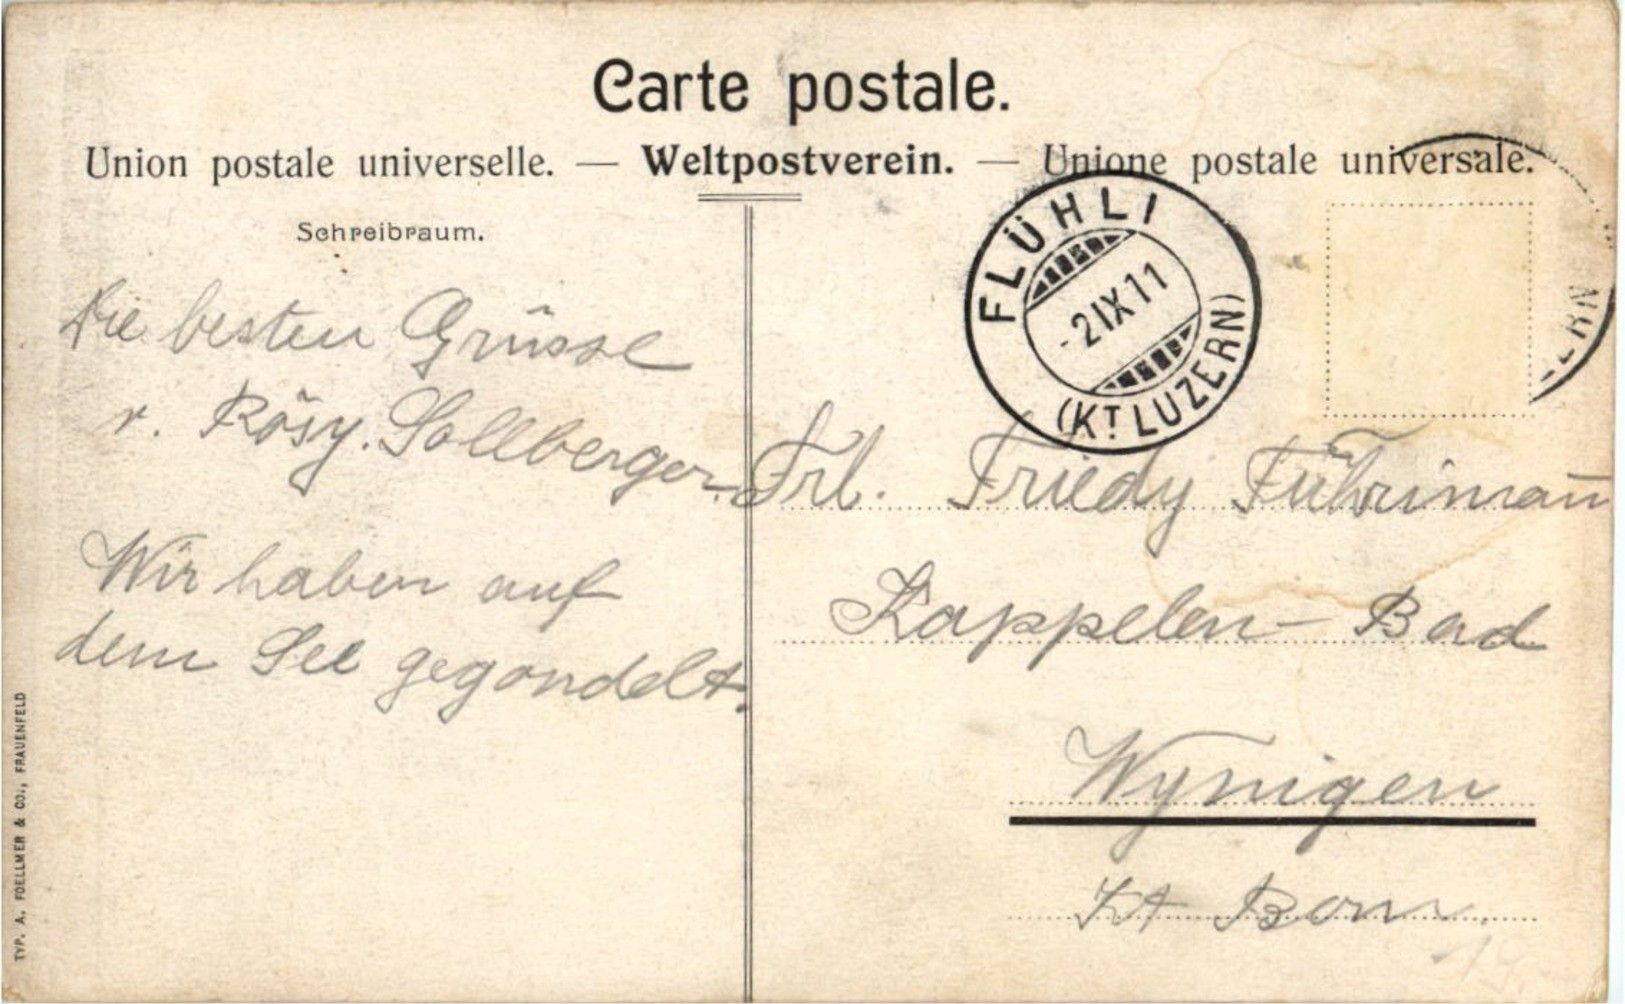 Carte postale.
Union postale universelle. — Weltpostverein. — Unione postale universale.
Schreibraum.
FLÜHLI
-2 IX 11
(KT LUZERN)
ERN
Die besten Grüsse
v. Rösy. Sollberger.
Wir haben auf
dem See gegondelt.
Frl. Friedy Führiman
Kappelen-Bad
Wynigen
Kt Bern.
TYP. A. FOELLMER & CO., FRAUENFELD